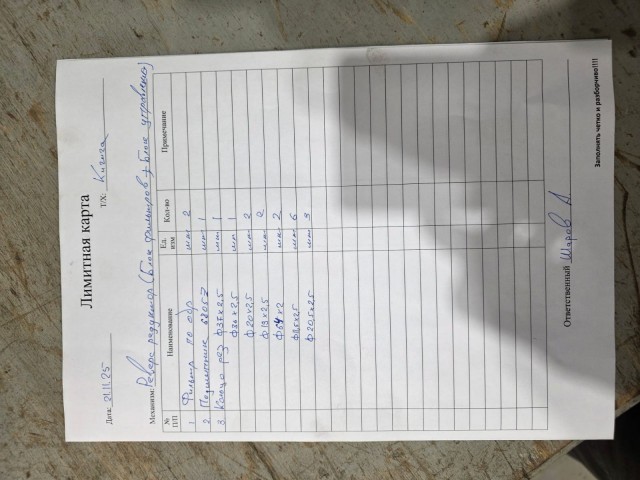 Лимитная карта
Дата: 21.11.25 Т/Х: Кигега
Механизм: Реверс редуктор (Блок фильтров + Блок управления)
№ П/П Наименование Ед. изм Кол-во Примечание
1 Фильтр по обр шт 2
2 Подшипник 6205 шт 1
3 Кольцо рез ф35х2,5 шт 1
ф36х2,5 шт 1
ф20х2,5 шт 2
ф13х2,5 шт 2
ф64х2 шт 2
шт 6
ф20,5х2,5 шт 3
Ответственный Шаров А
Заполнять четко и разборчиво!!!!